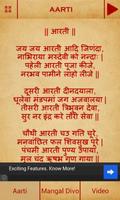 AARTI
|| आरती ||
जय जय आरती आदि जिणंदा,
नाभिराया मरुदेवी को नन्दा;
पहेली आरती पूजा कीजे,
नरभव पामीने लाहो लीजे.
दुसरी आरती दीनदयाला,
धूलेवा मंडपमां जग अजवाला;
तीसरी आरती त्रिभुवन देवा,
सुर नर इन्द्र करे तोरी सेवा.
चौथी आरती चउगति चूरे,
मनवांछित फल शिवसुख पूरे;
पंचमी आरती पुण्य उपाया,
मूल चन्द्र ऋषभ गुण गाया.
Exciting Features. Know More!
Aarti
Mangal Divo
Video